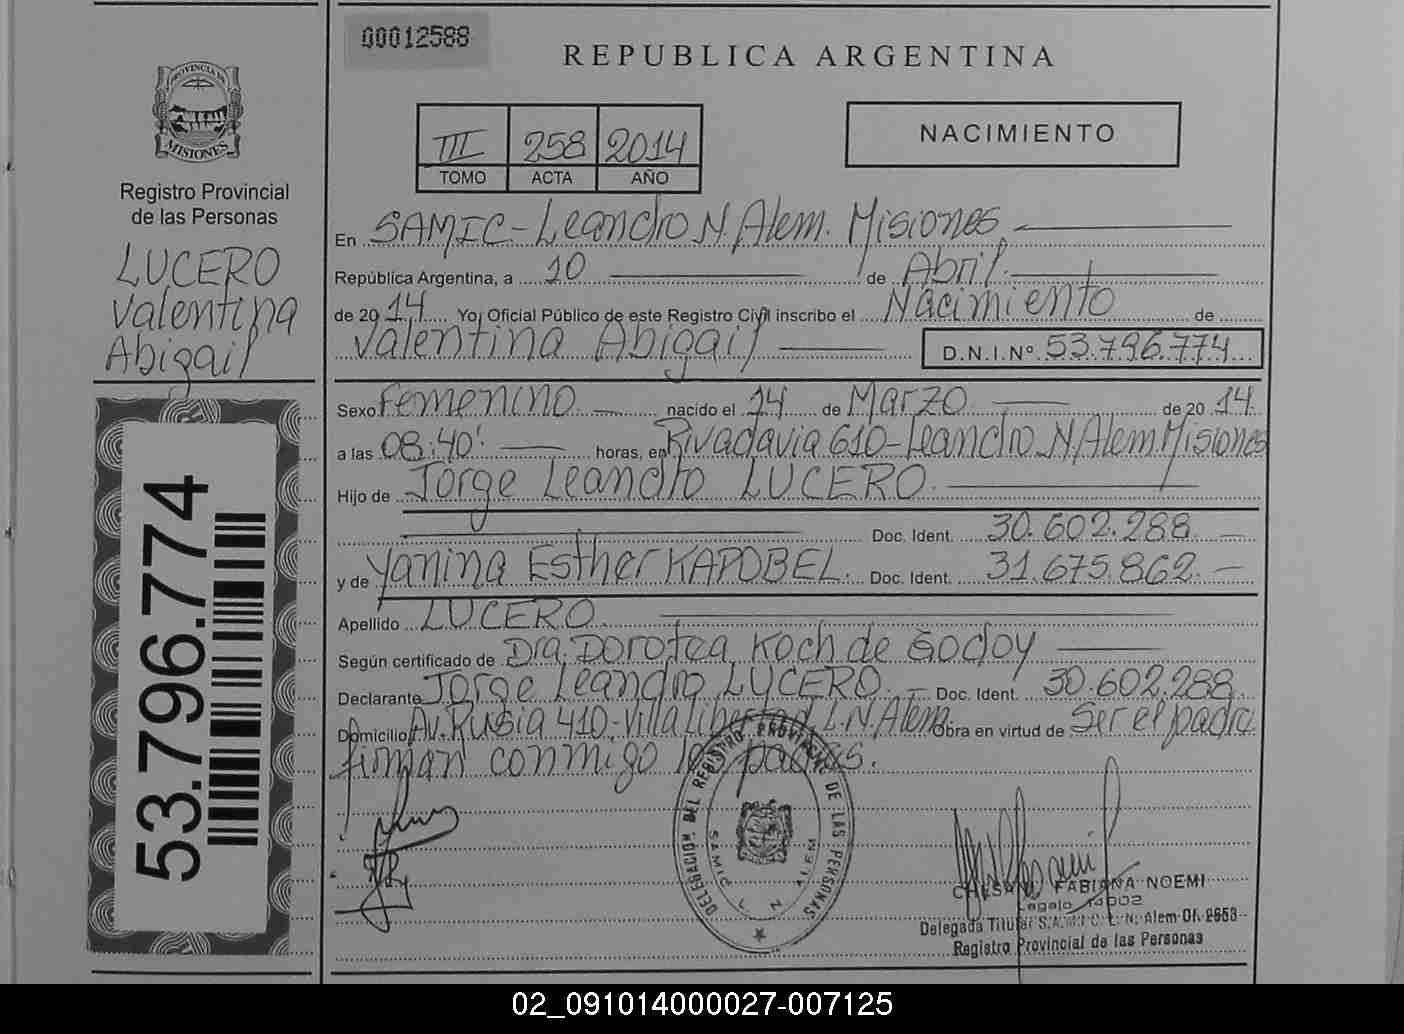 00012588
REPUBLICA ARGENTINA
PROVINCIA DE
MISIONES
Registro Provincial
de las Personas
LUCERO
Valentina
Abigail
53.796.774
III 258 2014
TOMO ACTA AÑO
NACIMIENTO
En SAMIC-Leandro N. Alem. Misiones
República Argentina, a 10 de Abril
de 20 14 Yo, Oficial Público de este Registro Civil inscribo el Nacimiento de
Valentina Abigail D.N.I.Nº 53.796.774
Sexo Femenino nacido el 14 de Marzo de 20 14
a las 08:40' horas, en Rivadavia 610-Leandro N. Alem. Misiones
Hijo de Jorge Leandro LUCERO.
Doc. Ident. 30.602.288
y de Yanina Esther KAPOBEL. Doc. Ident. 31.675.862.
Apellido LUCERO.
Según certificado de Dra. Dorotea Koch de Godoy
Declarante Jorge Leandro LUCERO. Doc. Ident. 30.602.288
Domicilio Av. Rusia 410-Villa Libertad. L.N. Alem. Obra en virtud de Ser el padre
firman conmigo los padres.
DELEGACION DEL REGISTRO PROVINCIAL DE LAS PERSONAS
SAMIC L. N. ALEM
FABIANA NOEMI
Legajo
Delegada Titular S.A.M.I.C. L. N. Alem Of. 2653
Registro Provincial de las Personas
02_091014000027-007125